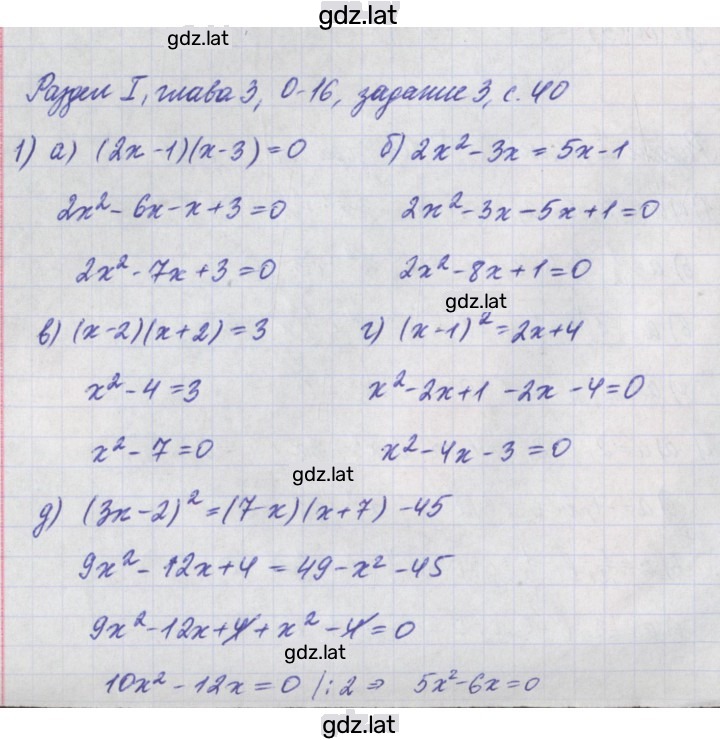 gdz.lat
gdz.lat
Раздел I, глава 3, О-16, задание 3, с. 40
1) а) (2x - 1)(x - 3) = 0 б) 2x² - 3x = 5x - 1
2x² - 6x - x + 3 = 0 2x² - 3x - 5x + 1 = 0
2x² - 7x + 3 = 0 2x² - 8x + 1 = 0
gdz.lat
в) (x - 2)(x + 2) = 3 г) (x - 1)² = 2x + 4
x² - 4 = 3 x² - 2x + 1 - 2x - 4 = 0
x² - 7 = 0 x² - 4x - 3 = 0
gdz.lat
д) (3x - 2)² = (7 - x)(x + 7) - 45
9x² - 12x + 4 = 49 - x² - 45
9x² - 12x + 4 + x² - 4 = 0
gdz.lat
10x² - 12x = 0 |: 2 ⇒ 5x² - 6x = 0
gdz.lat